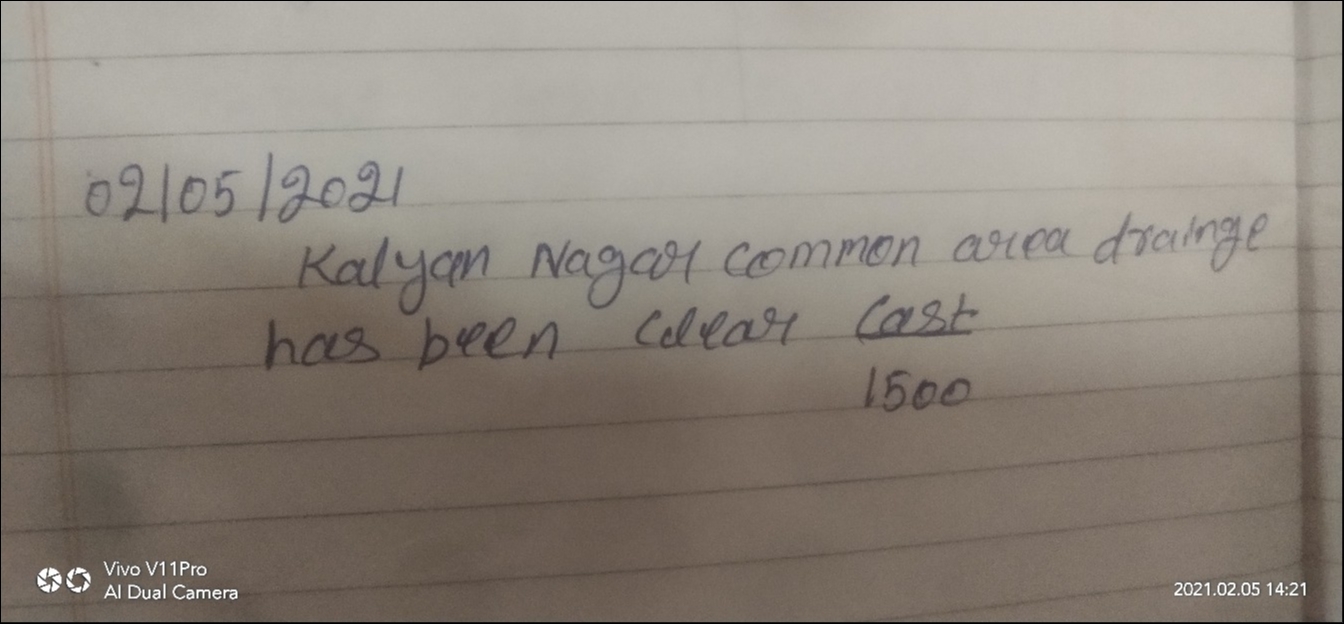 02/05/2021
Kalyan Nagar common area drainge
has been Clear Cast
1500
Vivo V11Pro
AI Dual Camera
2021.02.05 14:21